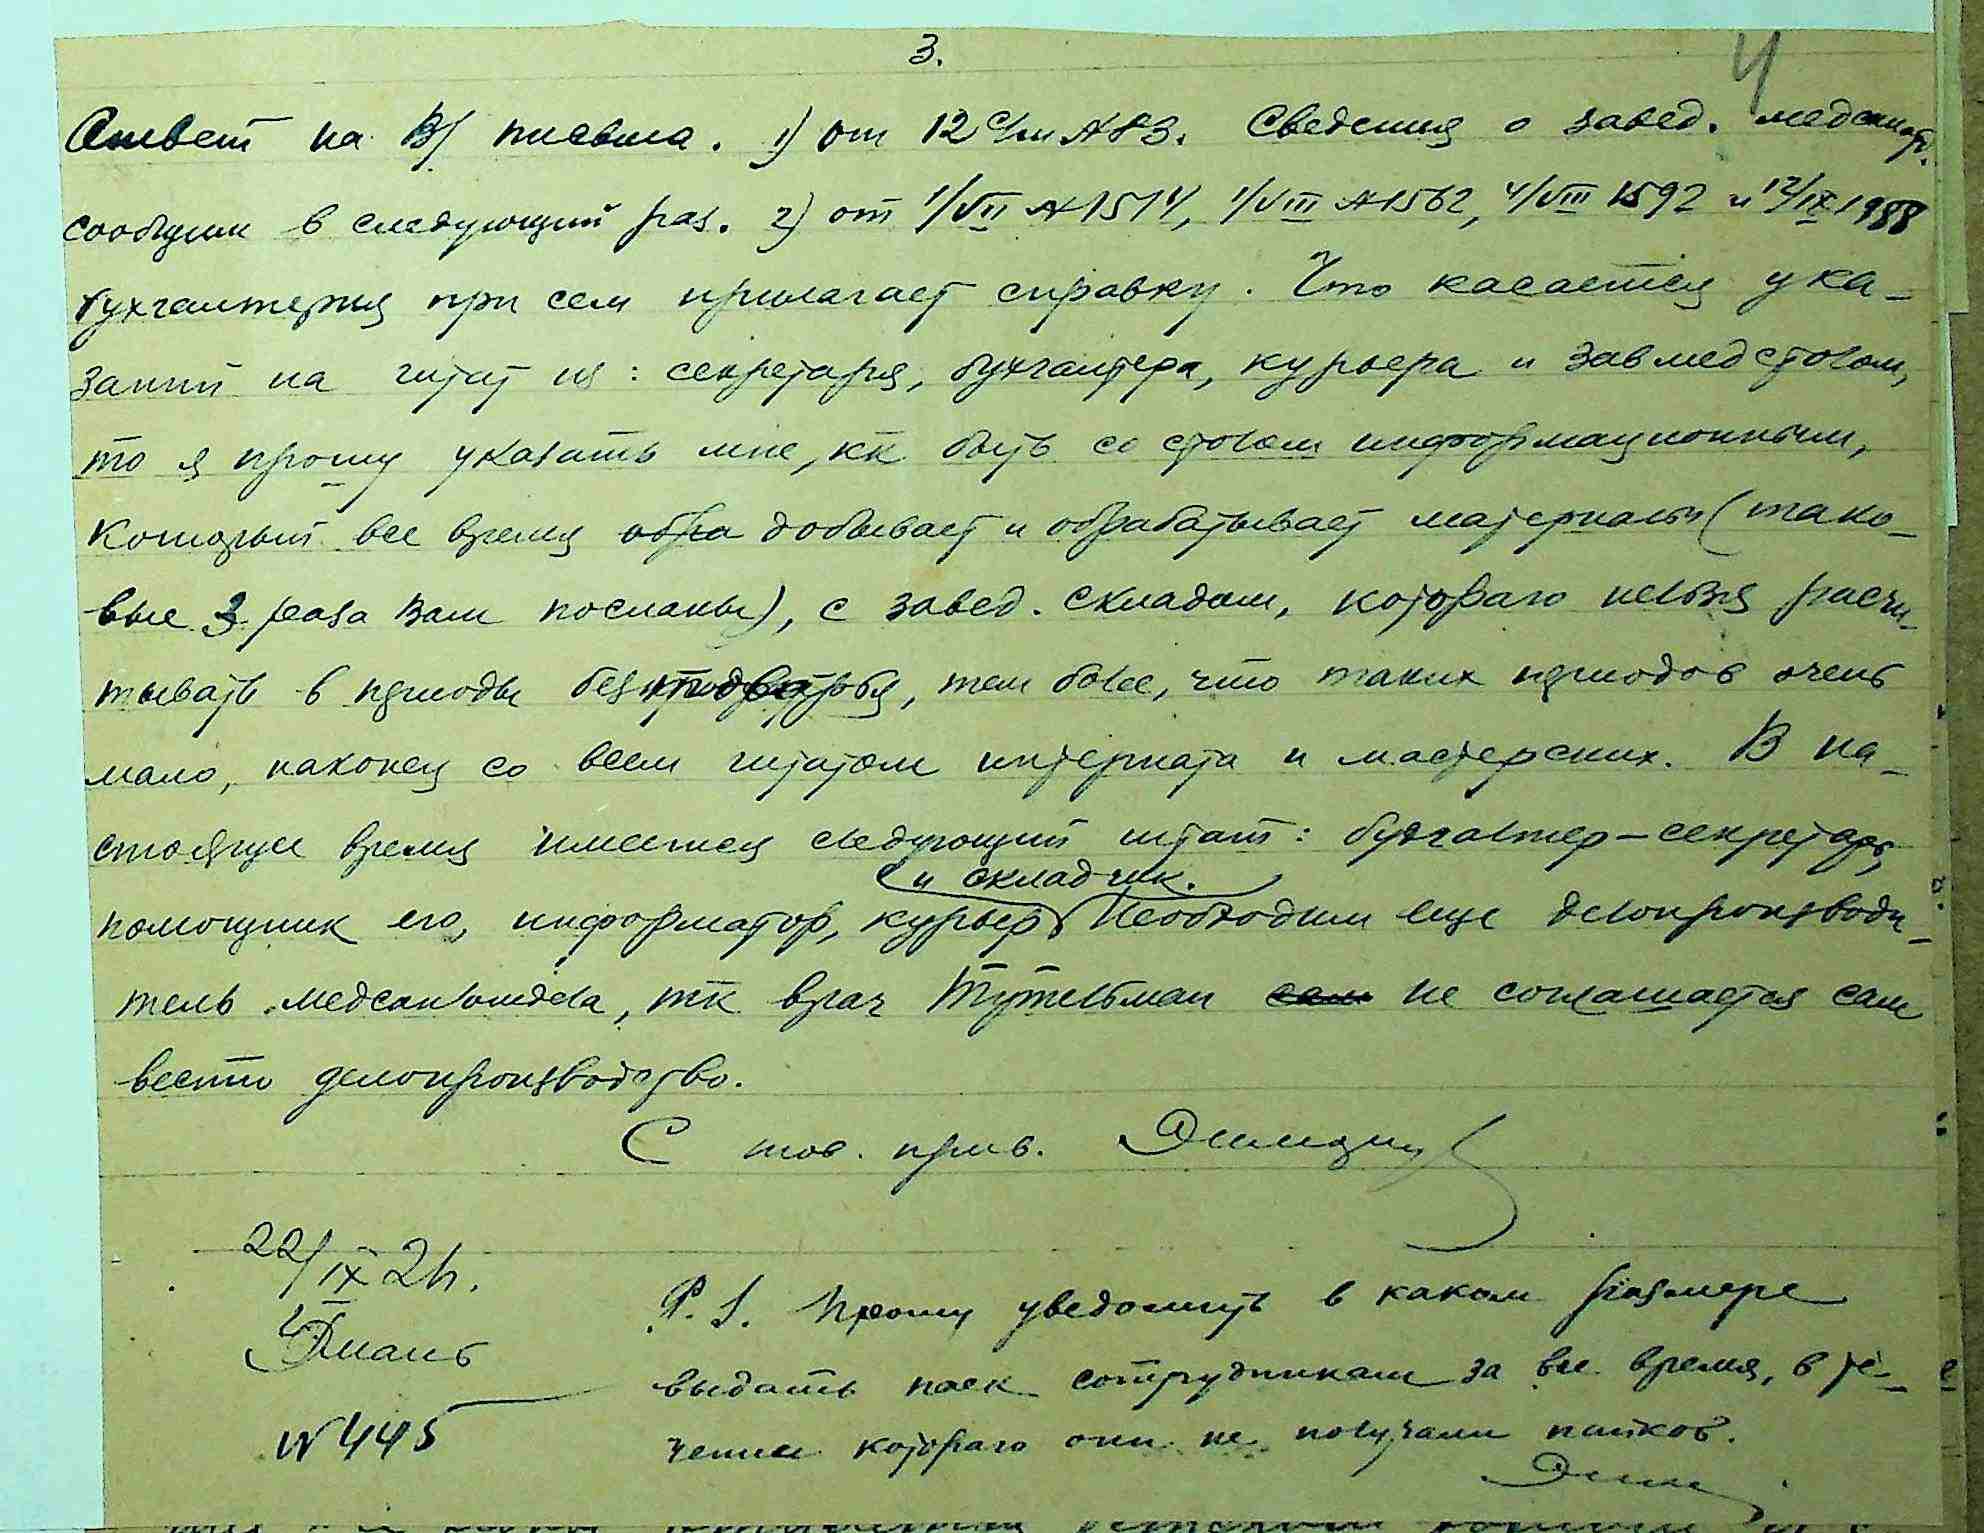 3.
4
Ответ на В/ письма. 1) от 12 с/м №83. Сведения о завед. медсанотд.
сообщим в следующий раз. 2) от 1/VII №1514, 1/VIII №1562, 4/VIII 1592 и 12/IX 1988
бухгалтерия при сем прилагает справку. Что касается ука-
заний на штат из: секретаря, бухгалтера, курьера и завмедстолом,
то я прошу указать мне, кк быть со столом информационным,
который все время обра добывает и обрабатывает материалы (тако-
вые 3 раза Вам посланы), с завед. складом, котораго нельзя расчи-
тывать в периоды без, тем более, что таких периодов очень
мало, наконец со всем штатом интерната и мастерских. В на-
стоящее время имеется следующий штат: бухгалтер-секретарь,
и складчик.
помощник его, информатор, курьер Необходим еще делопроизводи-
тель медсанотдела, тк врач Тутельман сам не соглашается сам
вести делопроизводство.
С тов. прив.
22/IX 21г.
г.
N 445
P.S. Прошу уведомить в каком размере
выдать паек сотрудникам за все время, в те-
чении котораго они не получали пайков.